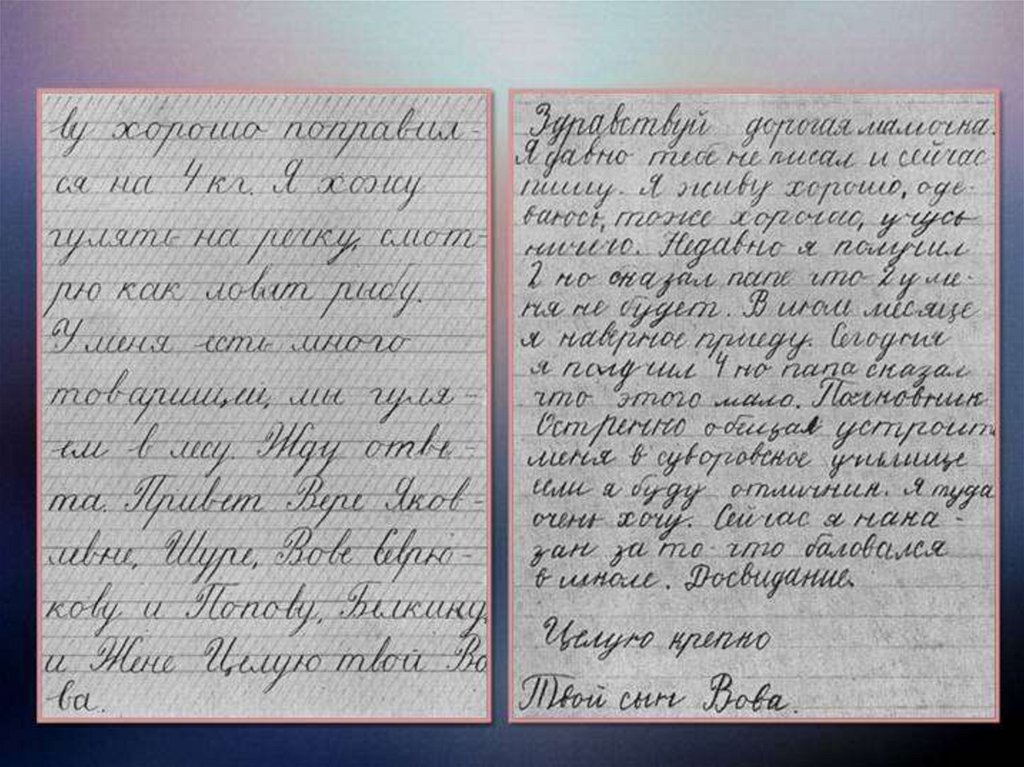 ву хорошо поправил-
ся на 4 кг. Я хожу
гулять на речку, смот-
рю как ловят рыбу.
У меня есть много
товарищей, мы гуля-
ем в лесу. Жду отве-
та. Привет Вере Яков-
левне, Шуре, Вове Севрю-
кову и Попову, Белкину,
и Жене Целую твой Во
ва.
Здравствуй дорогая мамочка.
Я давно тебе не писал и сейчас
пишу. Я живу хорошо, оде-
ваюсь, тоже хорошо, учусь
ничего. Недавно я получил
2 но сказал папе что 2 у ме-
ня не будет. В июле месяце
я наврное приеду. Сегодня
я получил 4 но папа сказал
что этого мало. Полковник
Остренко обещал устроить
меня в суворовское училище
если я буду отличник. Я туда
очень хочу. Сейчас я нака-
зан за то что баловался
в школе. Досвидание.
Целую крепко
Твой сын Вова.